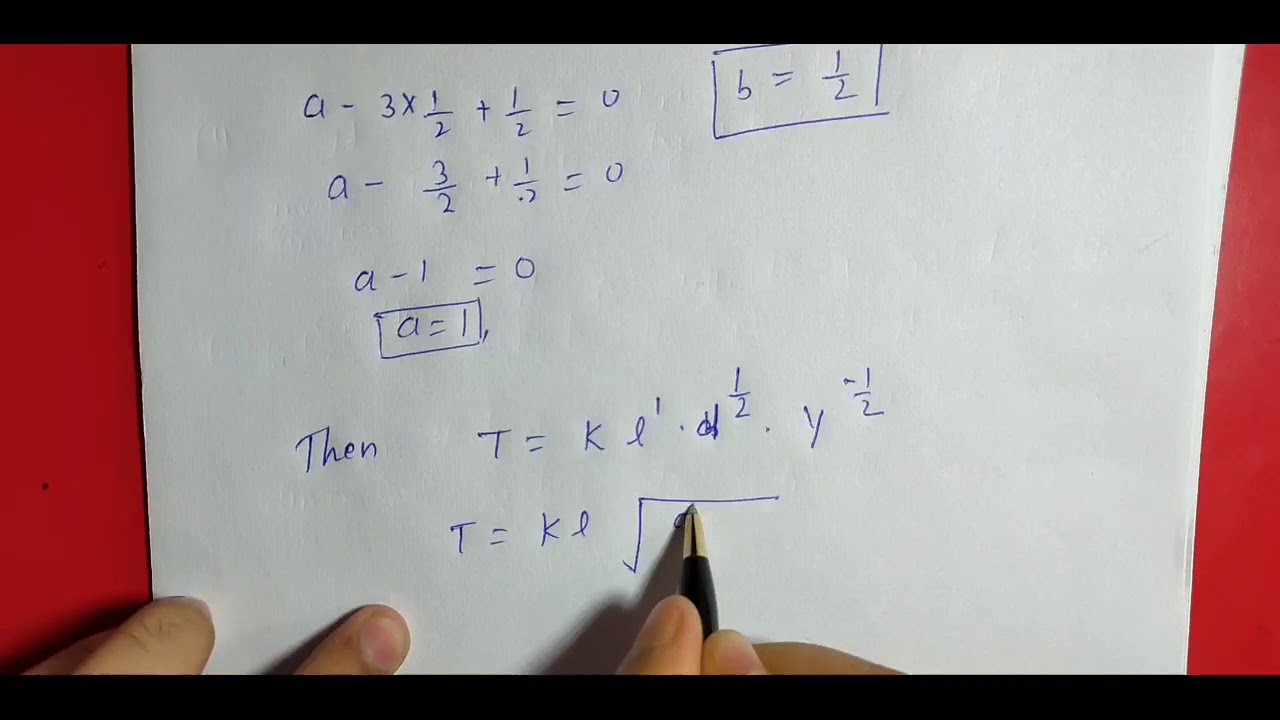 b = 1/2
a - 3×1/2 + 1/2 = 0
a - 3/2 + 1/2 = 0
a - 1 = 0
a = 1,
Then T = K l^1 · d^1/2 · y^-1/2
T = K l √